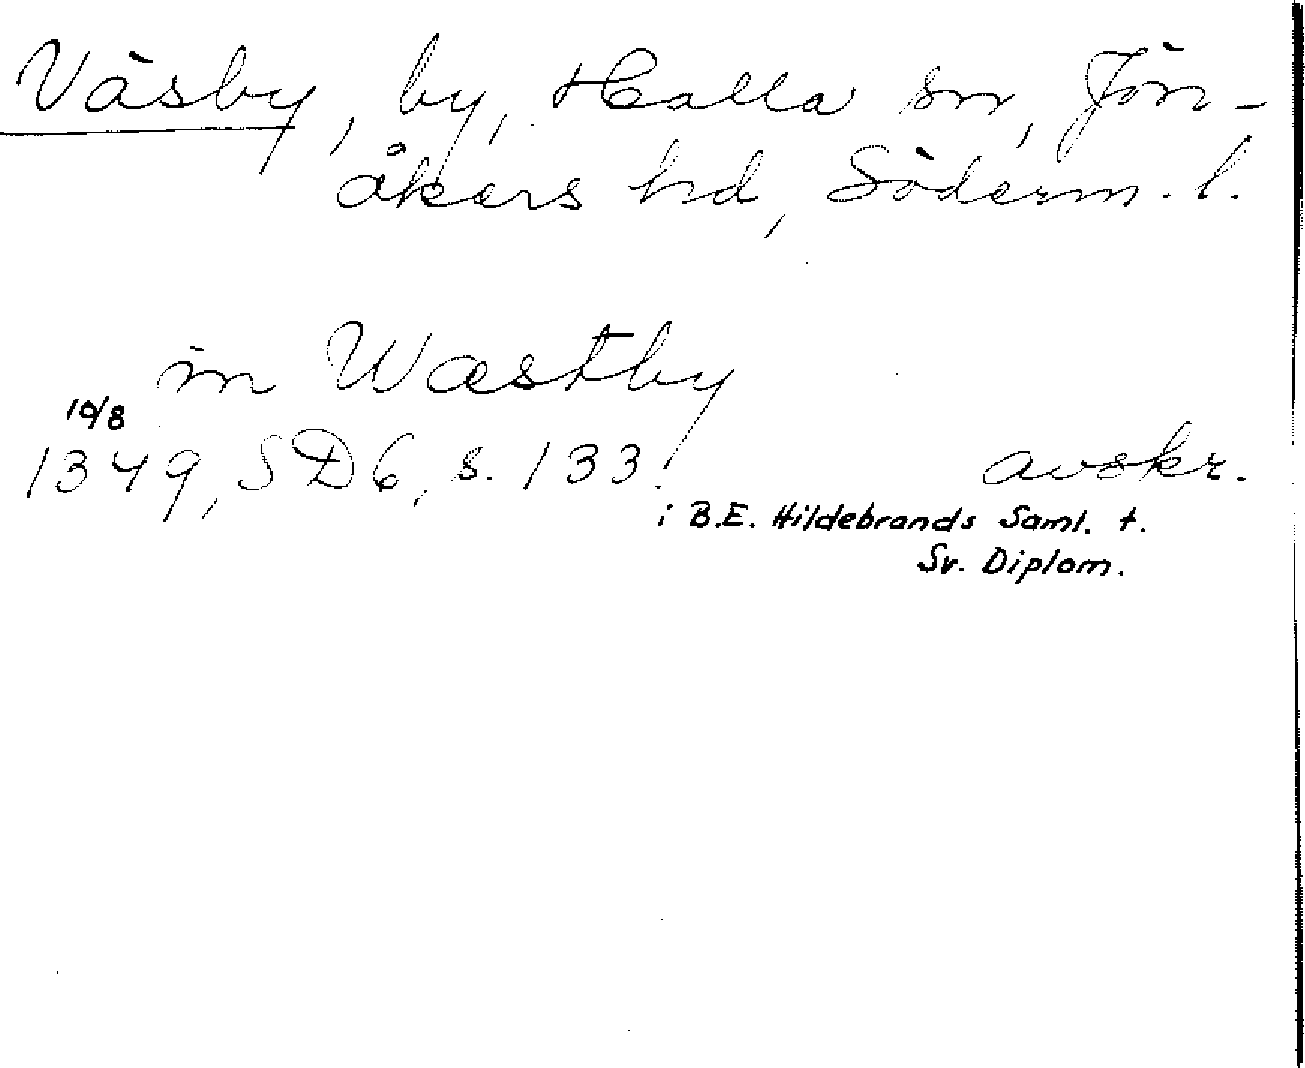 Väsby, by, Halla sn, Jön-
åkers hd, Söderm. l.
in Wæstby
10/8
1349, SD 6, s. 133. avskr.
i B.E. Hildebrands Saml. t.
Sv. Diplom.